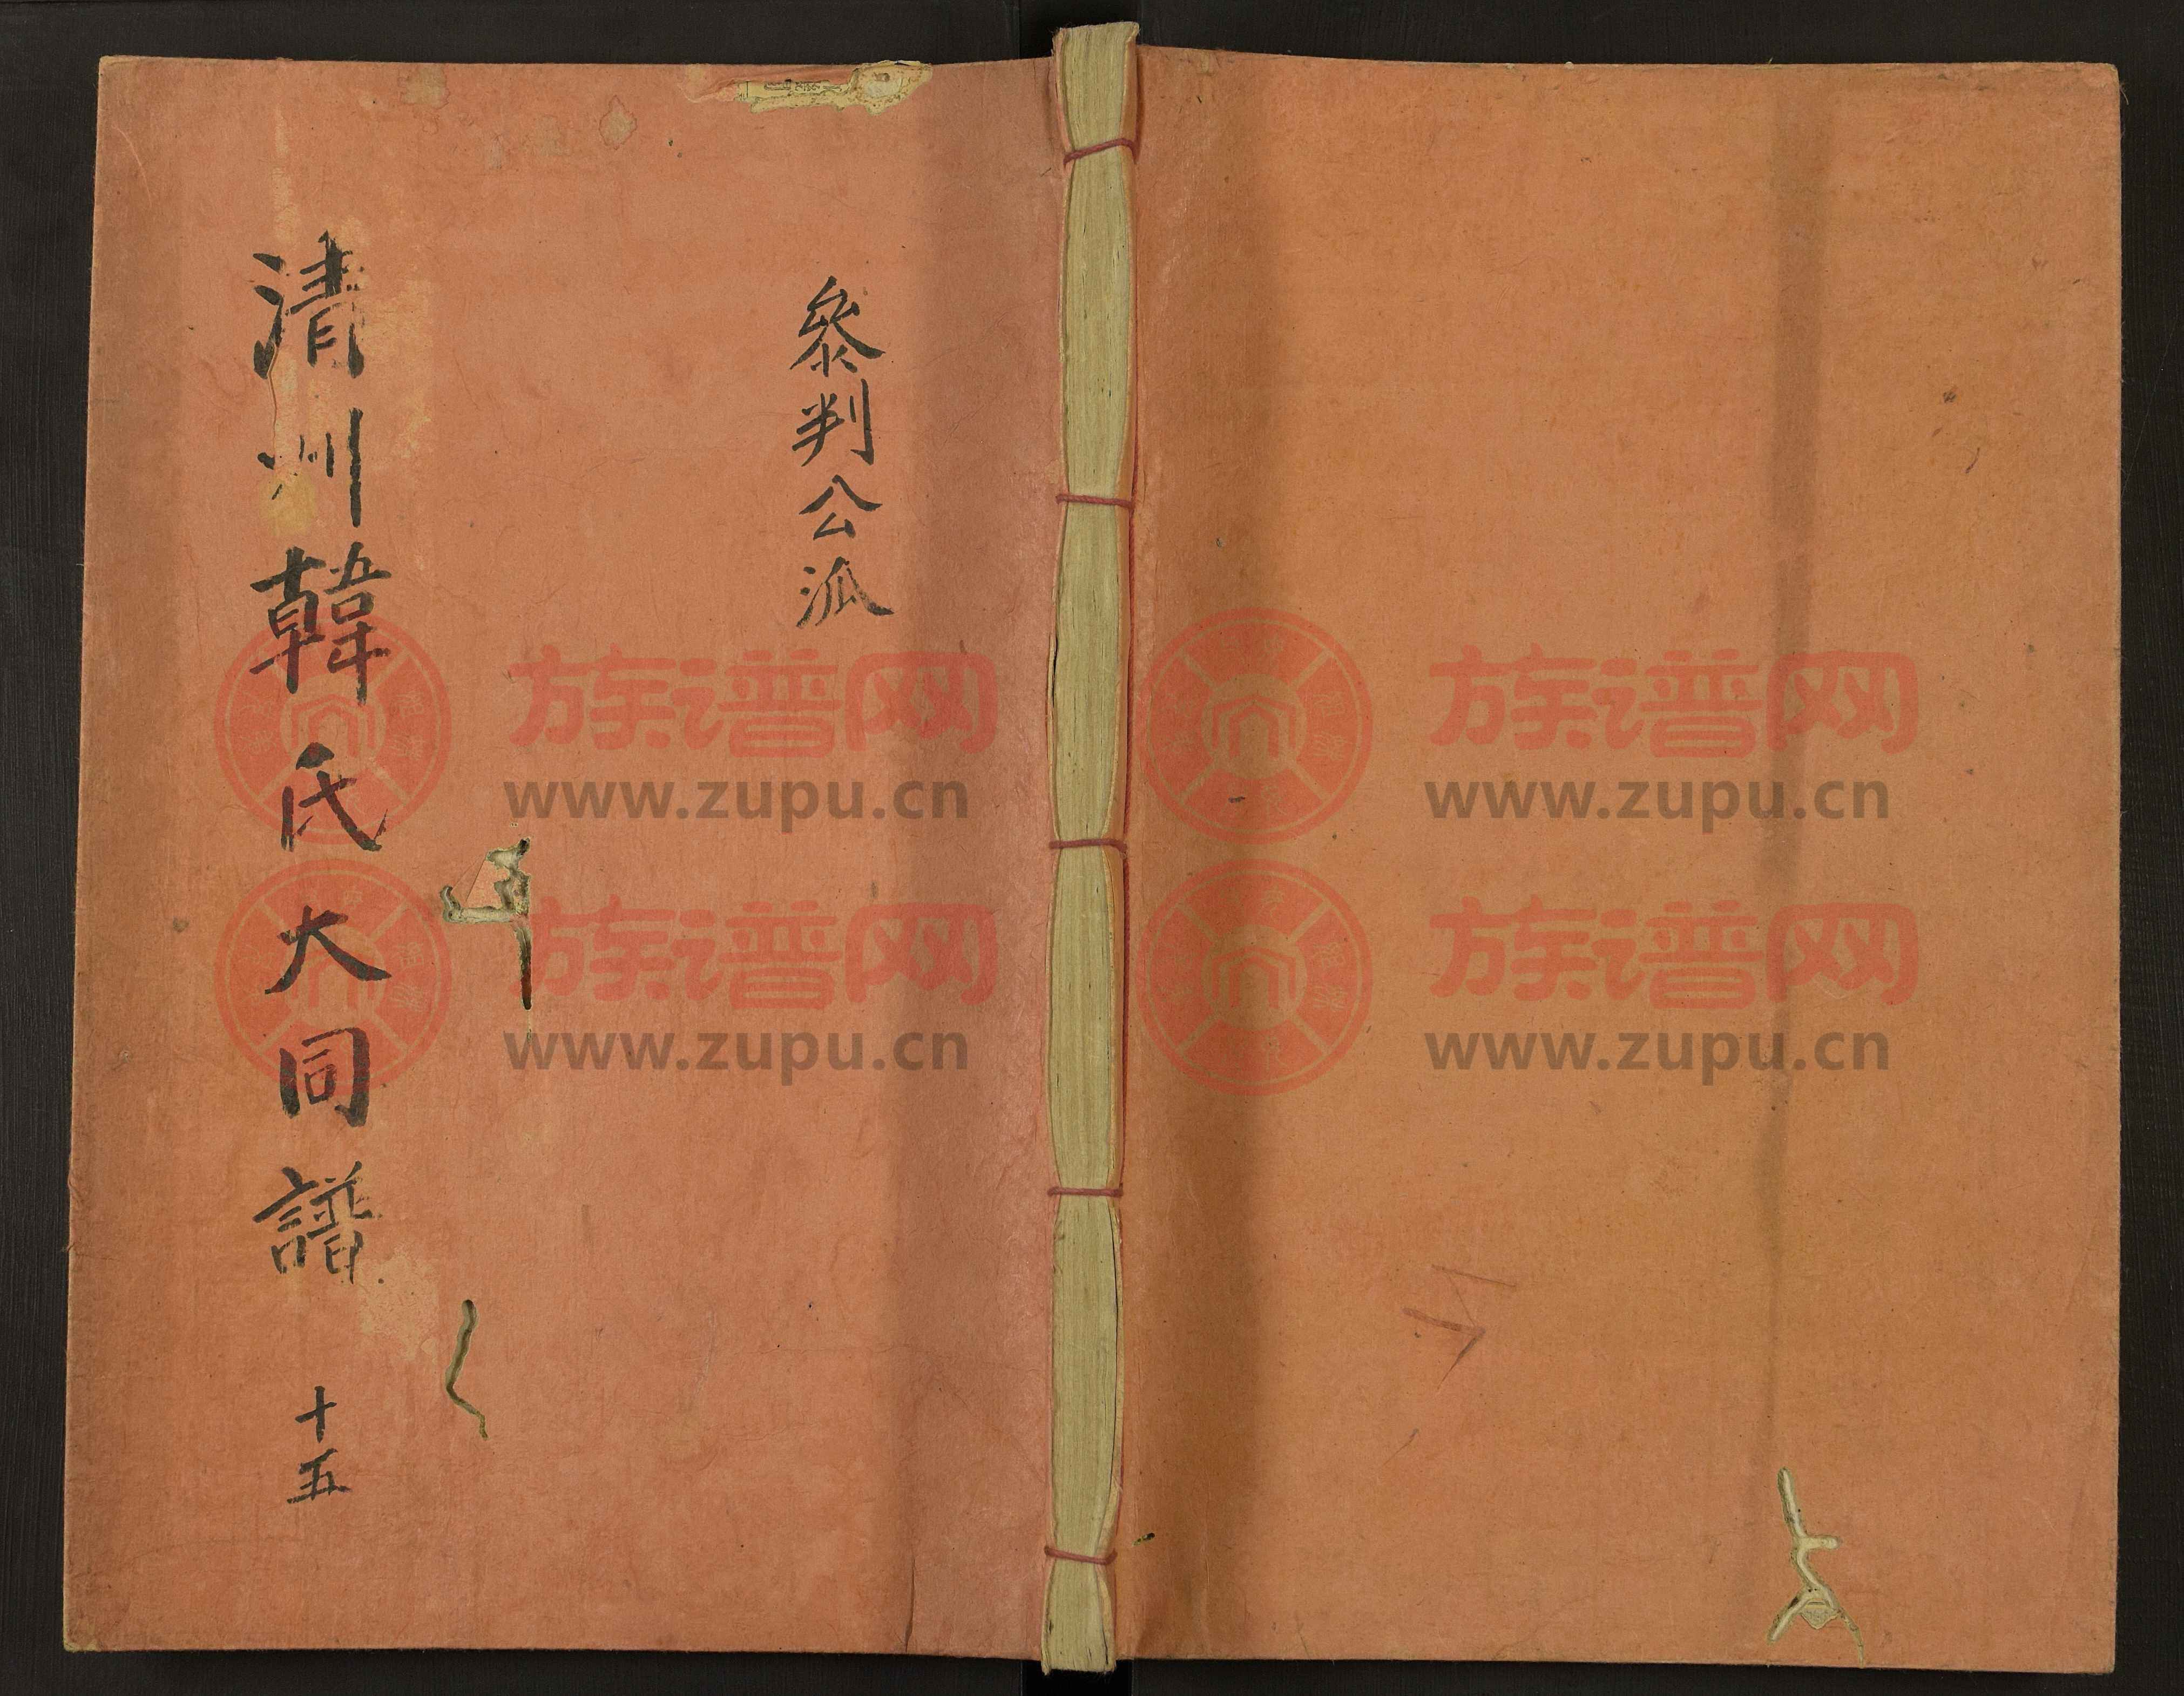 參判公派
清州韓氏大同譜 十五
族谱网
www.zupu.cn
族谱网
www.zupu.cn
族谱网
www.zupu.cn
族谱网
www.zupu.cn